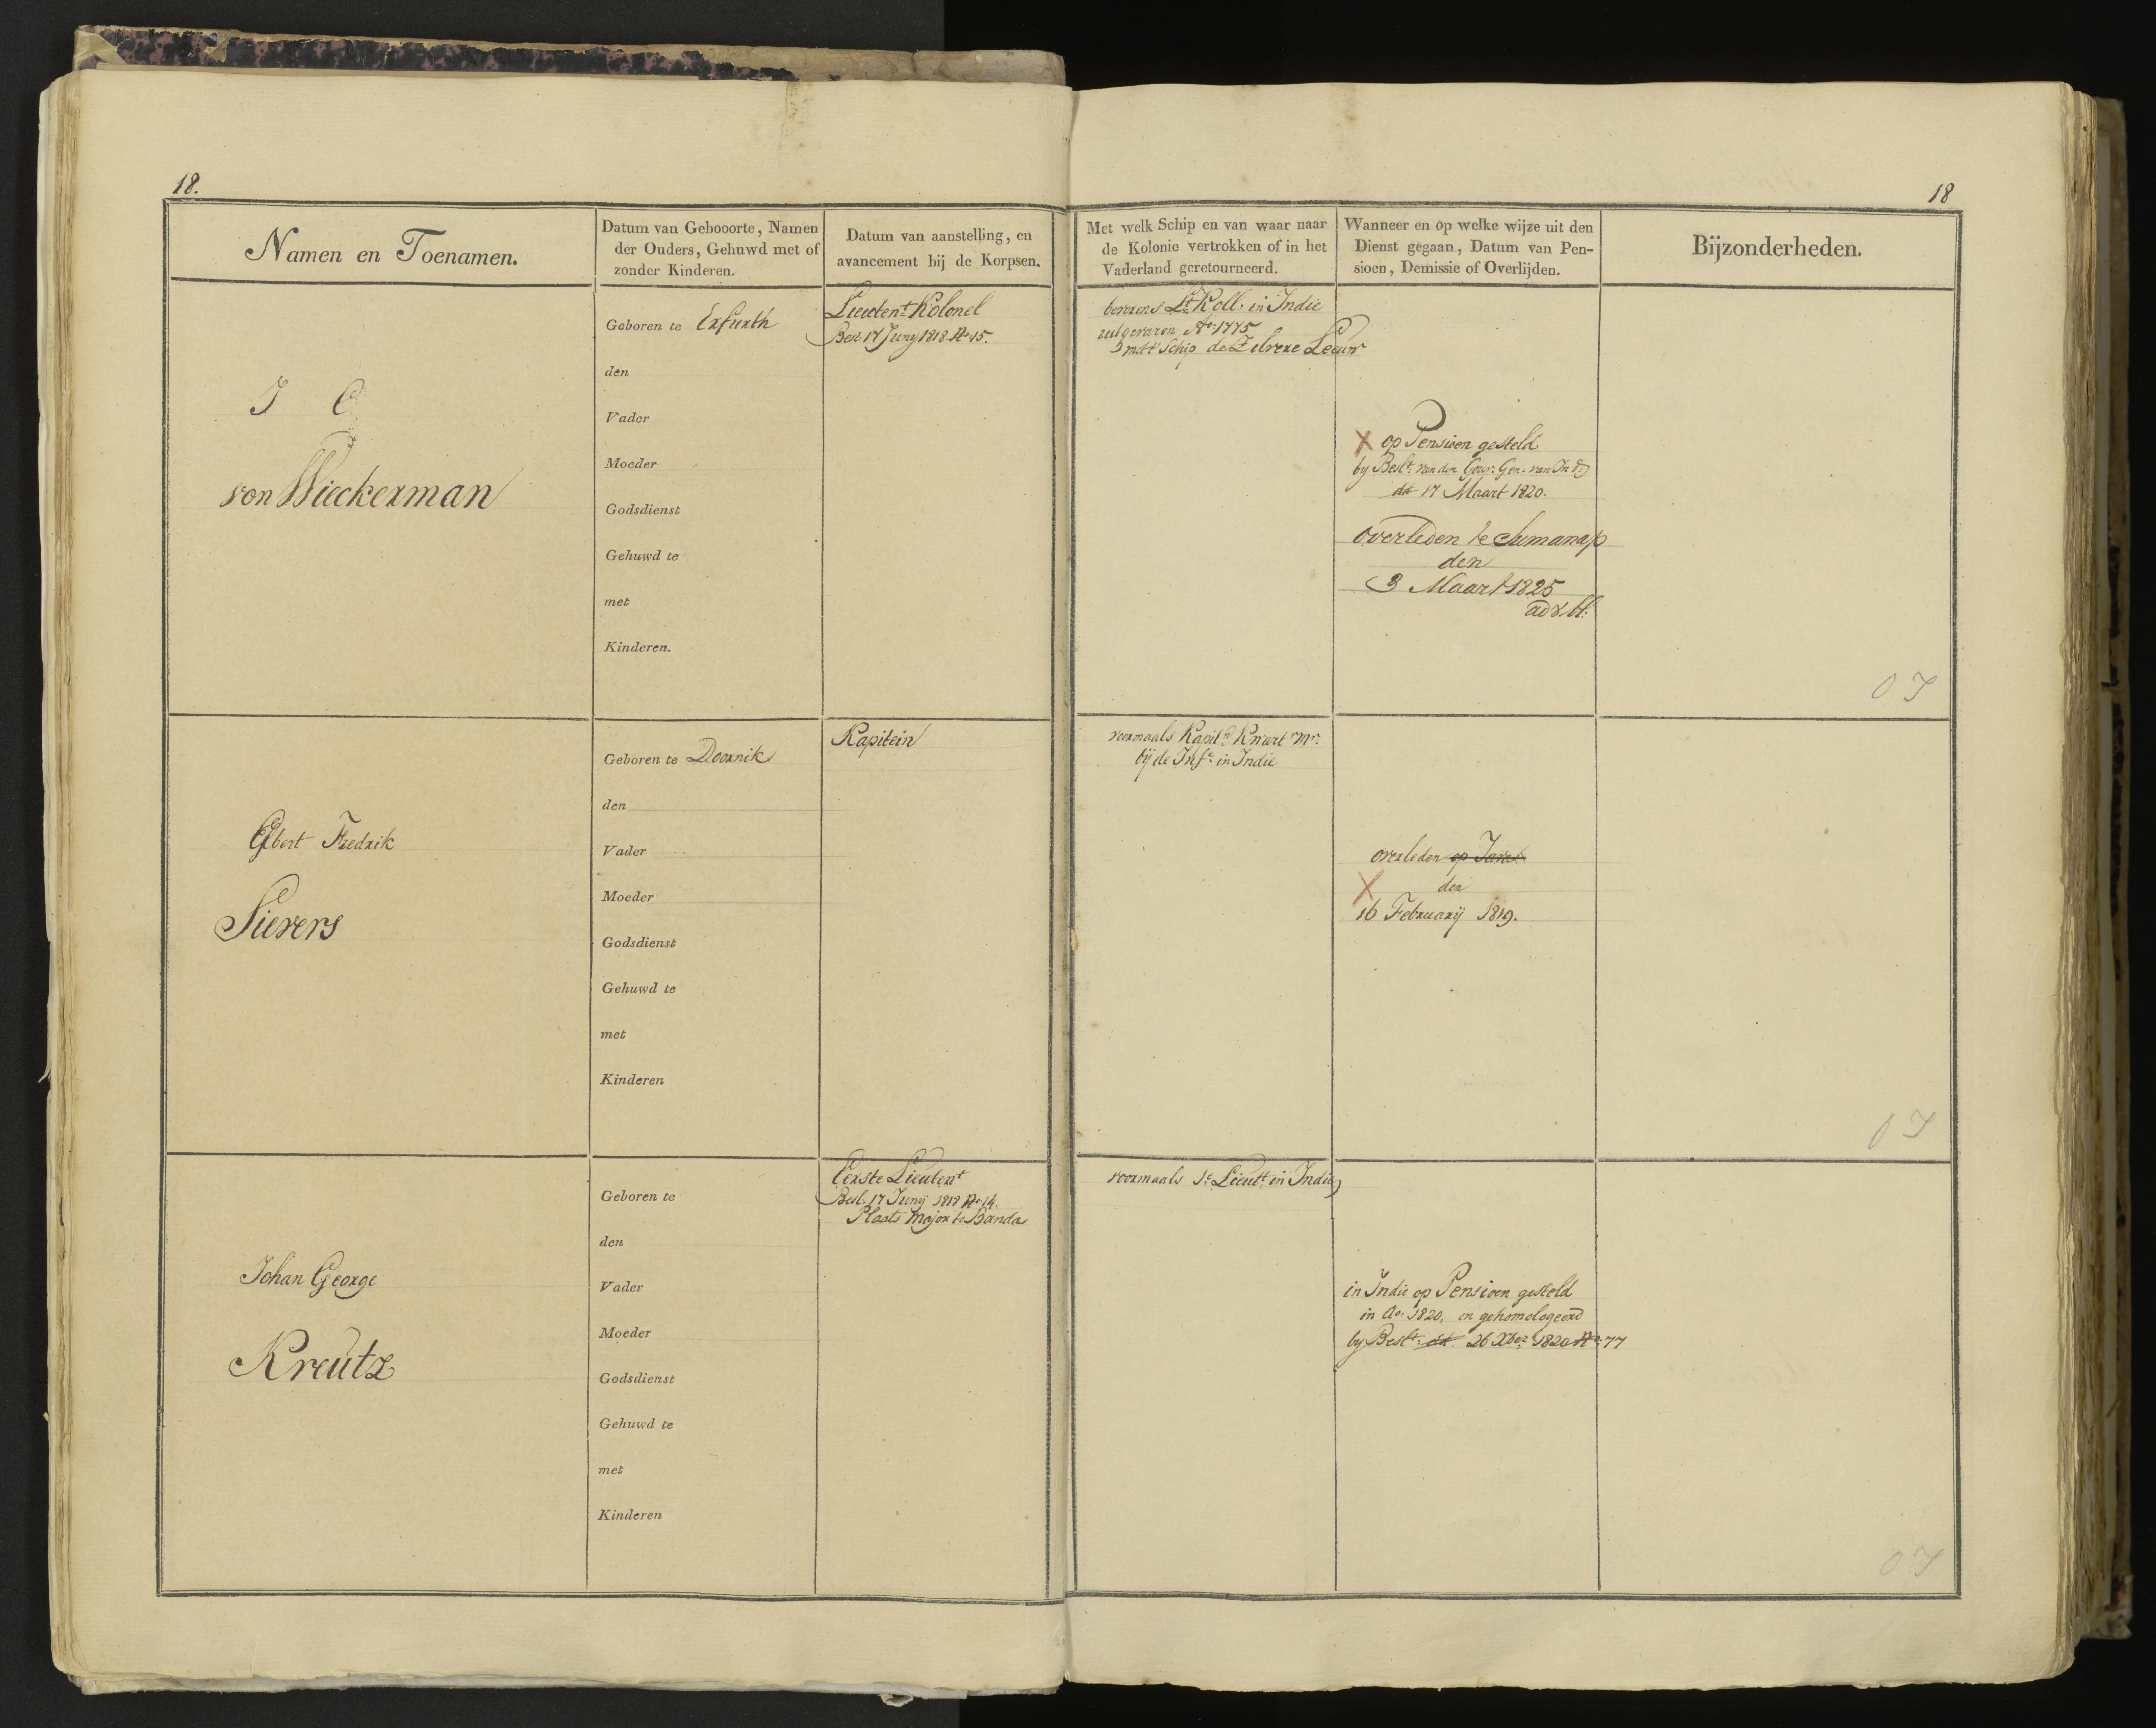 18.
18
Namen en Toenamen.
Datum van Gebooorte, Namen
der Ouders, Gehuwd met of
zonder Kinderen.
Datum van aanstelling, en
avancement bij de Korpsen.
Met welk Schip en van waar naar
de Kolonie vertrokken of in het
Vaderland geretourneerd.
Wanneer en op welke wijze uit den
Dienst gegaan, Datum van Pen-
sioen, Demissie of Overlijden.
Bijzonderheden.
J C
von Wieckerman
Geboren te Erfurth
den
Vader
Moeder
Godsdienst
Gehuwd te
met
Kinderen.
Lieutent Kolonel
Besl. 17 Juny 1818 No 15.
bevorens Lt Koll. in Indie
uitgevaren Ao. 1775
met t Schip de Zilvere Leeuw
X op Pensioen gesteld
by Beslt. van den Gouvr. Gen. van Ind.
dd 17 Maart 1820.
overleden te Sumanap
den
3 Maart 1825
O I
Egbert Fredrik
Sievers
Geboren te Doornik
den
Vader
Moeder
Godsdienst
Gehuwd te
met
Kinderen
Kapitein
voormaals Kapitn Kwart Mr.
bij de Infe. in Indie
overleden op Java
X den
16 February 1819.
O I
Johan George
Kreutz
Geboren te
den
Vader
Moeder
Godsdienst
Gehuwd te
met
Kinderen
Eerste Lieutent
Besl. 17 Junij 1818 No 14.
Plaats Major te Banda
voormaals 1e Lieutt. in Indie
in Indie op Pensioen gesteld
in Ao. 1820, en gehomologeerd
by Beslt. dd. 26 Xber 1820 No. 77
O I